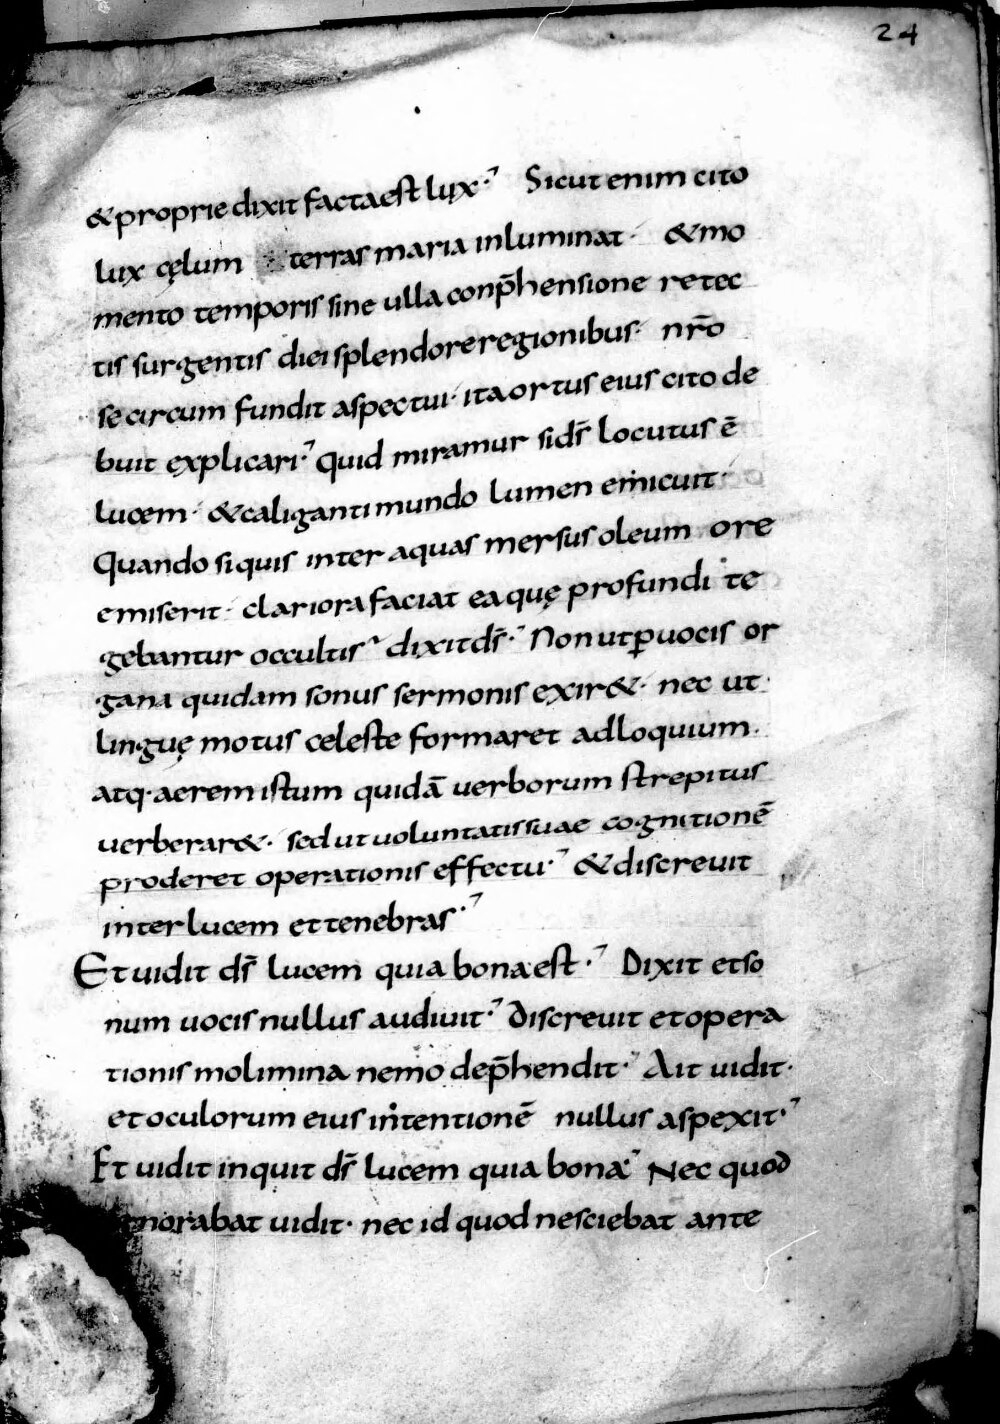 24
& proprie dixit facta est lux·⁊ Sicut enim cito
lux cęlum terras maria inluminat· & mo
mento temporis sine ulla conp̄hensione retec
tis surgentis diei splendore regionibus· nr̄o
se circum fundit aspectui· ita ortus eius cito de
buit explicari·⁊ Quid miramur si ds̄ locutus ē
lucem· & caliganti mundo lumen emicuit·
Quando si quis inter aquas mersus oleum ore
emiserit· clariora faciat ea quę profundi te
gebantur occultis⁊ dixit ds̄·⁊ Non ut ꝑ uocis or
gana quidam sonus sermonis exir&· nec ut
linguę motus celeste formaret adloquium·
atq· aerem istum quidā uerborum strepitus
uerberar&· sed ut uoluntatis suae cognitionē
proderet operationis effectu·⁊ & discreuit
inter lucem et tenebras·⁊
Et uidit ds̄ lucem quia bona est·⁊ Dixit et so
num uocis nullus audiuit·⁊ Discreuit et opera
tionis molimina nemo dep̄hendit·⁊ Ait uidit·
et oculorum eius intentionē nullus aspexit·⁊
Et uidit inquit ds̄ lucem quia bona·⁊ Nec quod
norabat uidit· nec id quod nesciebat ante